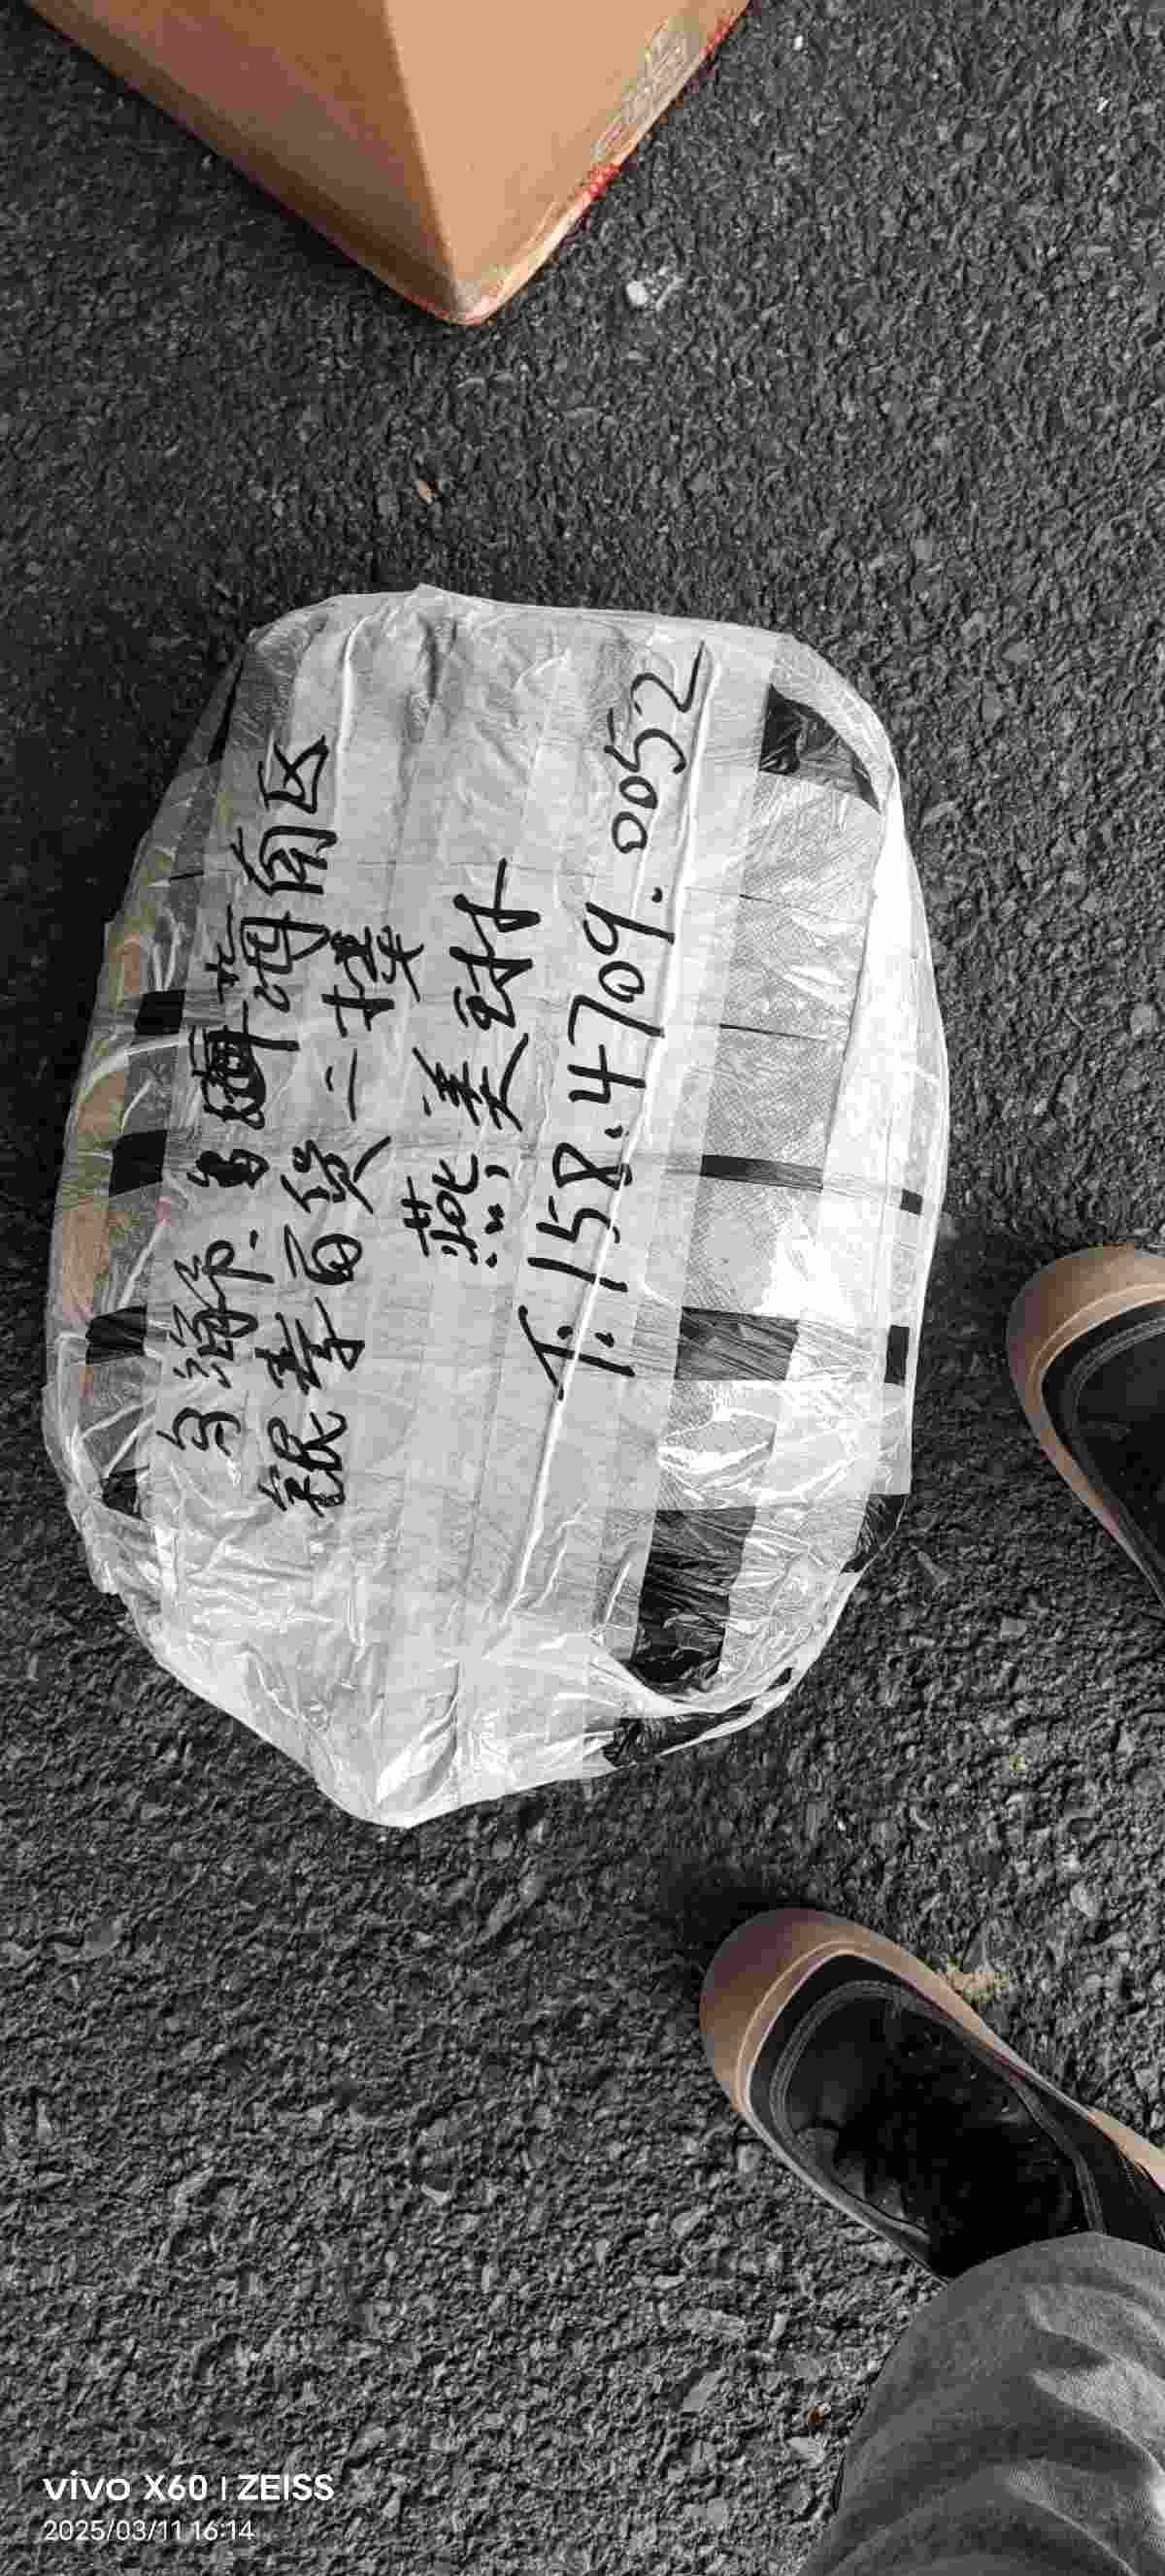 乌海市. 南区
银 百货二楼
燕美
T:158.4709.0052
vivo X60 | ZEISS
2025/03/11 16:14